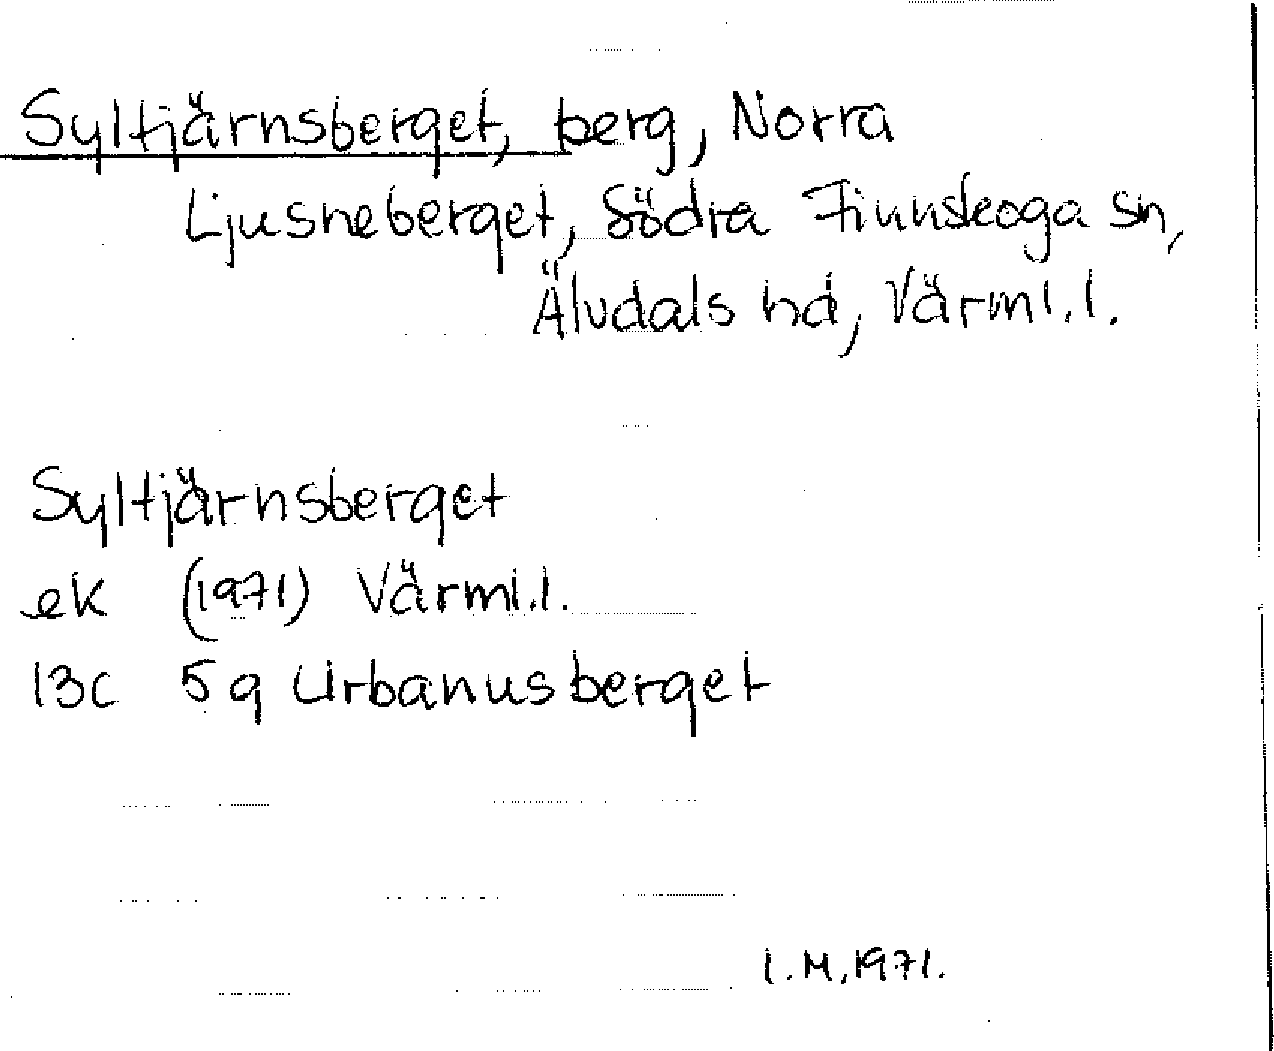 Syltjärnsberget, berg, Norra
Ljusneberget, Södra Finnskoga sn,
Älvdals hd, Värml.l.
Syltjärnsberget
ek (1971) Värml.l.
13c 5g Urbanusberget
I.M.1971.